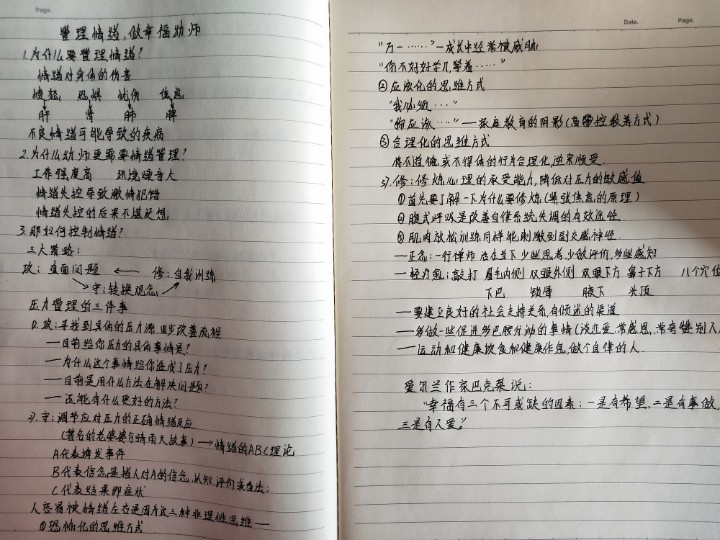 Page.
管理情绪,做幸福幼师
1.为什么要管理情绪?
情绪对身体的伤害
愤怒 恐惧 忧伤 焦虑
肝 肾 肺 脾
不良情绪可能导致的疾病
2.为什么幼师更需要情绪管理?
工作强度高 环境噪音大
情绪失控导致激情犯错
情绪失控的后果不堪设想
3.那如何控制情绪?
三大策略:
攻:直面问题 ← 修:自我训练
守:转换观念
压力管理的三件事
1).攻:寻找到具体的压力源,逐步改善流程
—目前给你压力的具体事情是?
—为什么这个事情给你造成了压力?
—目前是用什么方法在解决问题?
—还能有什么更好的方法?
2).守:调节应对压力的正确情绪反应
(著名的老婆婆与晴雨天故事)→情绪的ABC理论
A代表诱发事件
B代表信念,是指人对A的信念,认知,评价或看法;
C代表结果即症状
人容易被情绪左右是因为这三种非理性思维—
①恐惧化的思维方式
Date. Page.
“万一……”—成长中经常被威胁
“你不好好学儿,等着……”
②应该化的思维方式
“我应该…”
“你应该…”—家庭教育的阴影(高掌控教养方式)
③合理化的思维方式
将不道德,或不得体的行为合理化,逆来顺受.
3).修:修炼心理的承受能力,降低对压力的敏感值
①首先要了解一下为什么要修炼(紧张焦虑的原理)
②腹式呼吸是改善自律系统失调的有效途径
③肌肉放松训练同样能刺激到副交感神经
—正念:一行禅师 活在当下 少些思考 少做评价,多些感知
—轻功敲:敲打 眉毛内侧 双眼外侧 双眼下方 鼻子下方 八个穴位
下巴 锁骨 腋下 头顶
—要建立良好的社会支持关系,有倾诉的渠道
—多做一些促进多巴胺分泌的事情(谈恋爱,常感恩,常有
—运动和健康饮食和健康作息,做个自律的人.
爱尔兰作家巴克莱说:
“幸福有三个不可或缺的因素:一是有希望,二是有事做,
三是有人爱。”